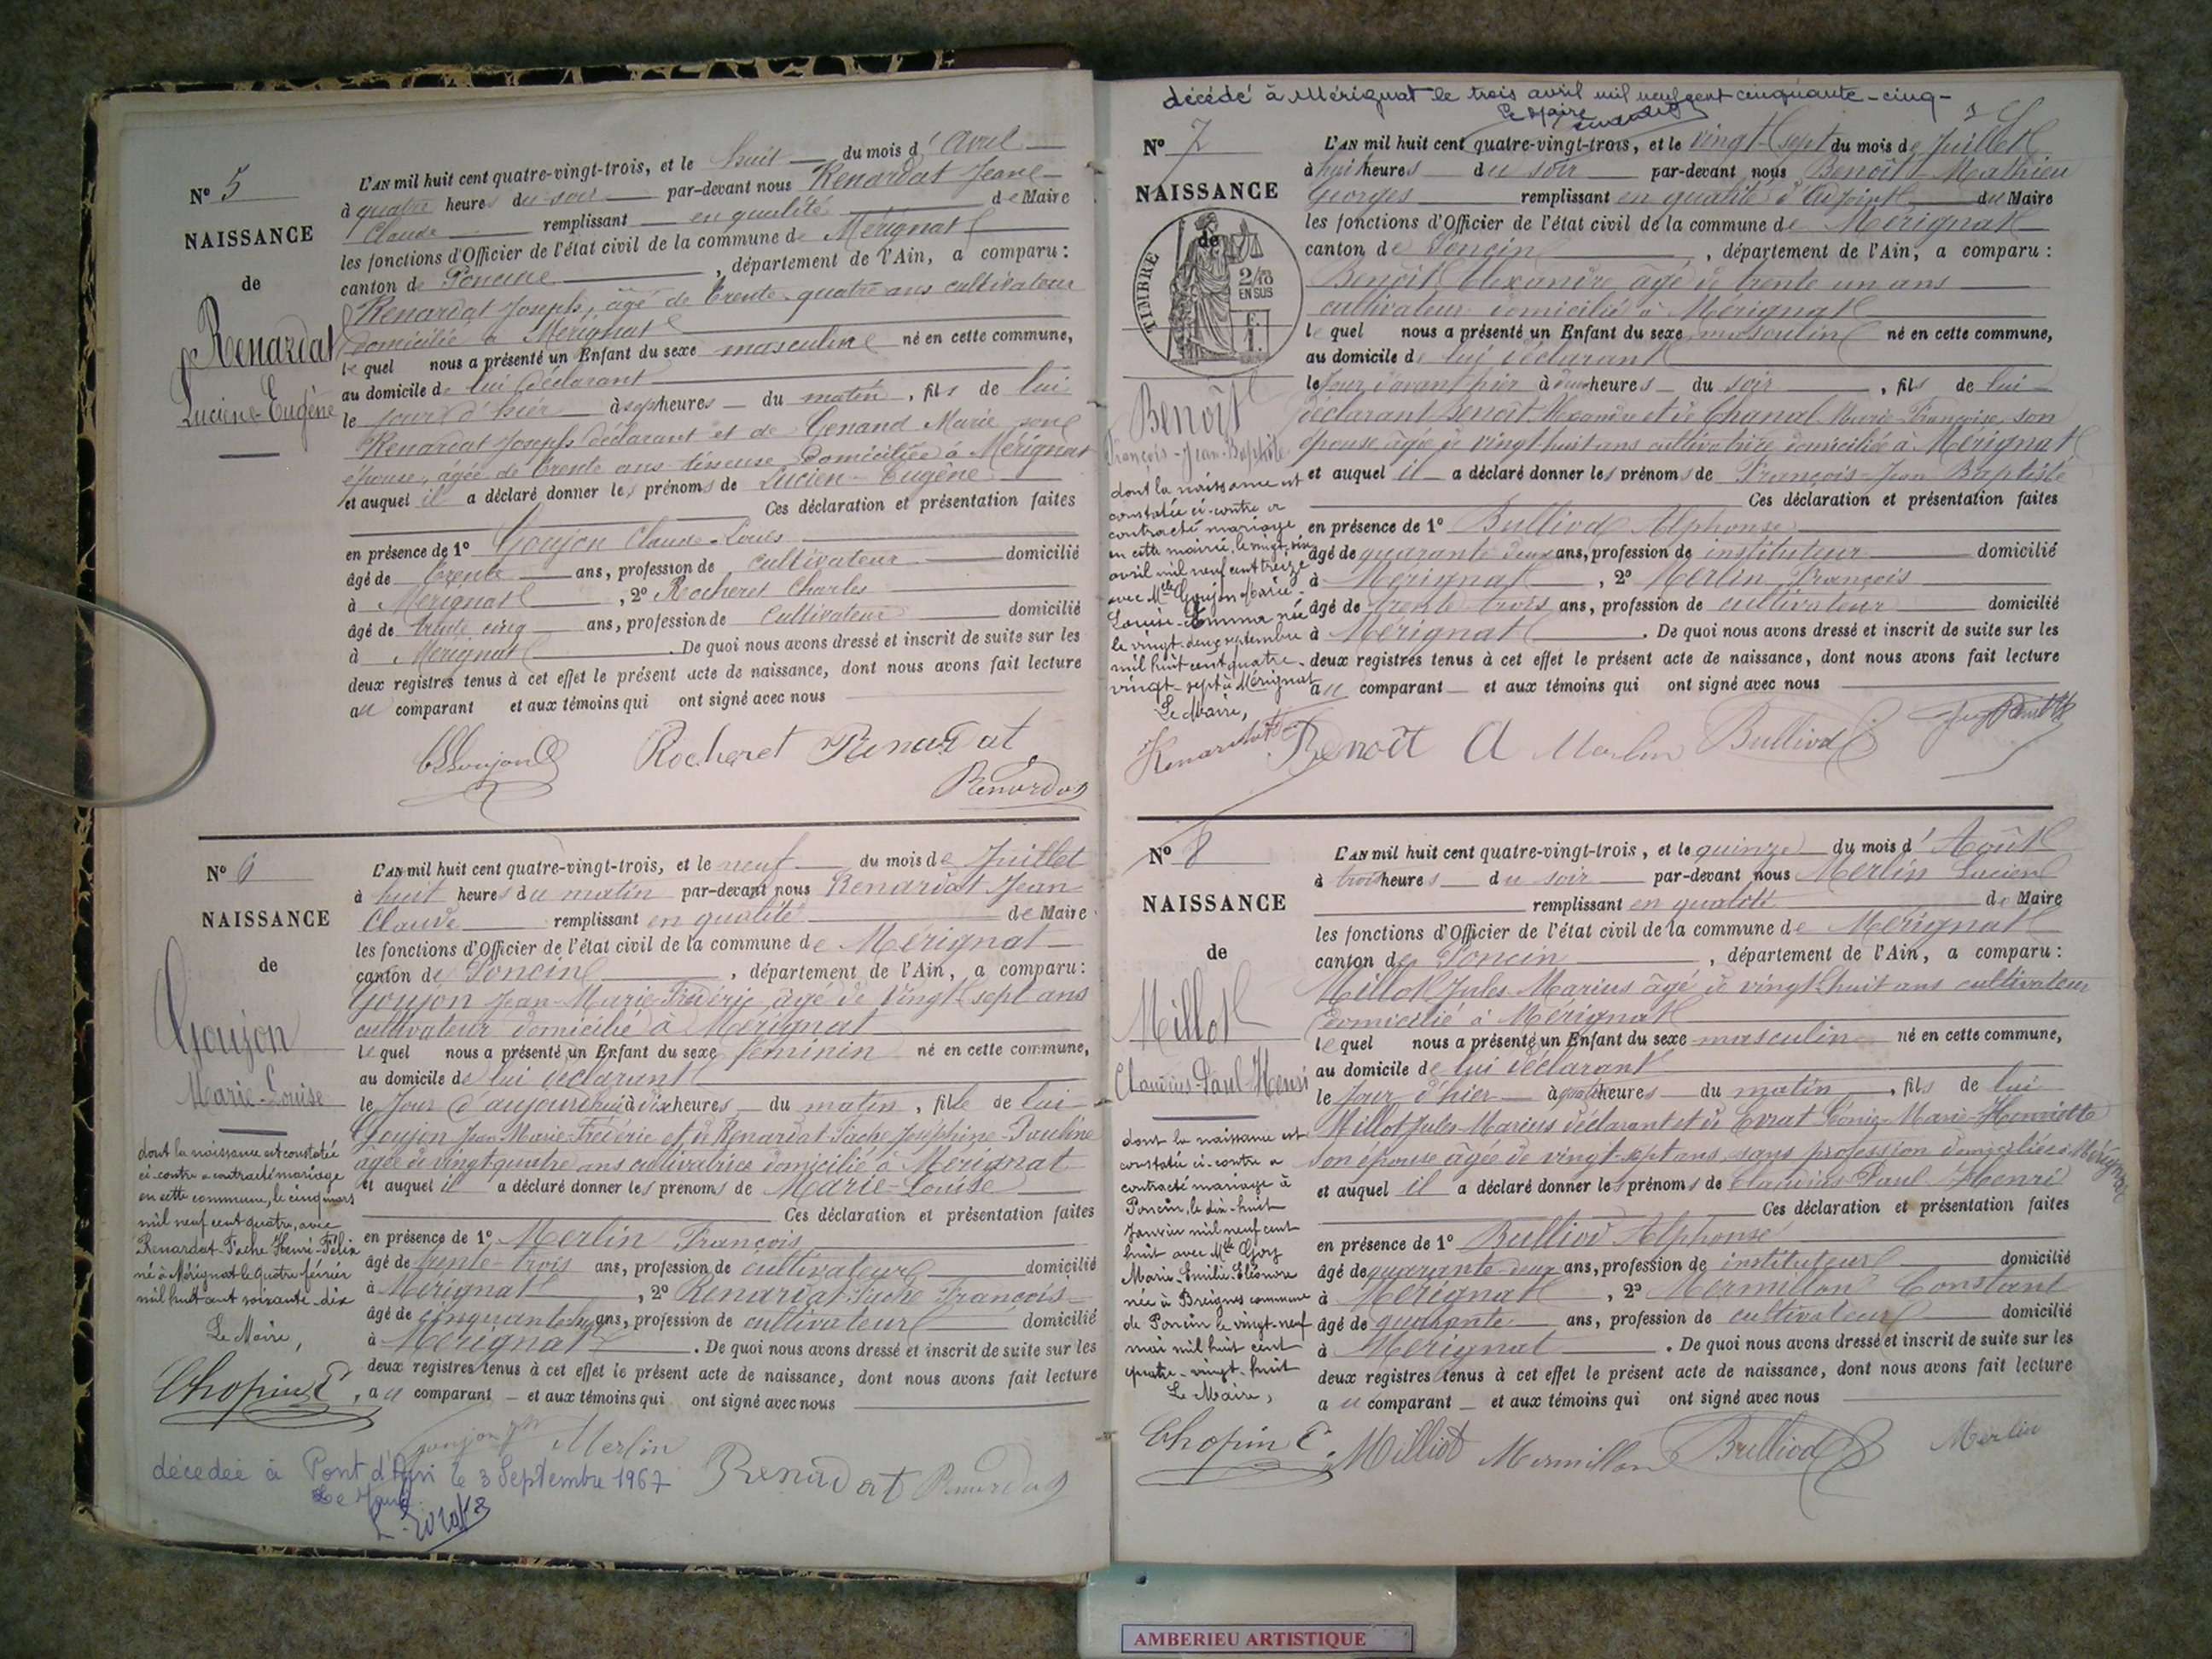 N° 5
NAISSANCE
de
Renardat
Lucien-Eugène
L'AN mil huit cent quatre-vingt-trois, et le huit du mois d'Avril
à quatre heures du soir par-devant nous Renardat Jean-
Claude remplissant en qualité de Maire
les fonctions d'Officier de l'état civil de la commune de Mérignat
canton de Poncin, département de l'Ain, a comparu :
Renardat Joseph, âgé de trente-quatre ans cultivateur
domicilié à Mérignat
lequel nous a présenté un Enfant du sexe masculin né en cette commune,
au domicile de lui déclarant
le jour d'hier à sept heures du matin, fils de lui
Renardat Joseph déclarant et de Genand Marie son
épouse, âgée de trente ans tisseuse domiciliée à Mérignat
et auquel il a déclaré donner les prénoms de Lucien-Eugène
Ces déclaration et présentation faites
en présence de 1° Goujon Claude-Louis
âgé de trente ans, profession de cultivateur domicilié
à Mérignat, 2° Rocheret Charles
âgé de trente cinq ans, profession de cultivateur domicilié
à Mérignat. De quoi nous avons dressé et inscrit de suite sur les
deux registres tenus à cet effet le présent acte de naissance, dont nous avons fait lecture
au comparant et aux témoins qui ont signé avec nous
Goujon Rocheret Renardat
Renardat
N° 6
NAISSANCE
de
Goujon
Marie-Louise
dont la naissance est constatée
ci-contre a contracté mariage
en cette commune, le cinq mars
mil neuf cent quatre, avec
Renardat-Fache Henri-Félix
né à Mérignat le quatre février
mil huit cent soixante-dix
Le Maire,
Chopin C
L'AN mil huit cent quatre-vingt-trois, et le neuf du mois de Juillet
à huit heures du matin par-devant nous Renardat Jean-
Claude remplissant en qualité de Maire
les fonctions d'Officier de l'état civil de la commune de Mérignat
canton de Poncin, département de l'Ain, a comparu :
Goujon Jean-Marie-Frédéric âgé de vingt-sept ans
cultivateur domicilié à Mérignat
lequel nous a présenté un Enfant du sexe féminin né en cette commune,
au domicile de lui déclarant
le Jour d'aujourd'hui à heures du matin, fille de lui
Goujon Jean-Marie-Frédéric et de Renardat-Fache Joséphine-Pauline
âgée de vingt-quatre ans cultivatrice domicilié à Mérignat
et auquel il a déclaré donner les prénoms de Marie-Louise
Ces déclaration et présentation faites
en présence de 1° Merlin François
âgé de trente-trois ans, profession de cultivateur domicilié
à Mérignat, 2° Renardat-Fache François
âgé de cinquante ans, profession de cultivateur domicilié
à Mérignat. De quoi nous avons dressé et inscrit de suite sur les
deux registres tenus à cet effet le présent acte de naissance, dont nous avons fait lecture
au comparant et aux témoins qui ont signé avec nous
goujon Merlin
décédée à Pont d'Ain le 3 Septembre 1967 Renardat Renardat
Le Maire
décédé à Mérignat le trois avril mil neuf cent cinquante-cinq-
Le Maire
N° 7
NAISSANCE
de
TIMBRE
2/10
EN SUS
Benoît
François-Jean-Baptiste
dont la naissance est
constatée ci-contre a
contracté mariage
en cette mairie, le vingt-six
avril mil neuf cent treize
avec Mlle Goujon Marie-
Louise-Emma née
le vingt-deux septembre
mil huit cent quatre-
vingt-sept à Mérignat
Le Maire,
Renardat
L'AN mil huit cent quatre-vingt-trois, et le vingt-sept du mois de Juillet
à huit heures du soir par-devant nous Benoît-Mathieu
Georges remplissant en qualité d'Adjoint du Maire
les fonctions d'Officier de l'état civil de la commune de Mérignat
canton de Poncin, département de l'Ain, a comparu :
Benoît Alexandre âgé de trente un ans
cultivateur domicilié à Mérignat
lequel nous a présenté un Enfant du sexe masculin né en cette commune,
au domicile de lui déclarant
le Jour d'avant hier à heures du soir, fils de lui
déclarant Benoît Alexandre et de Chanal Marie-Françoise, son
épouse âgée de vingt huit ans cultivatrice domiciliée à Mérignat
et auquel il a déclaré donner les prénoms de François-Jean Baptiste
Ces déclaration et présentation faites
en présence de 1° Bulliod Alphonse
âgé de quarante deux ans, profession de instituteur domicilié
à Mérignat, 2° Merlin François
âgé de trente trois ans, profession de cultivateur domicilié
à Mérignat. De quoi nous avons dressé et inscrit de suite sur les
deux registres tenus à cet effet le présent acte de naissance, dont nous avons fait lecture
au comparant et aux témoins qui ont signé avec nous
Benoît A Merlin Bulliod
N° 8
NAISSANCE
de
Millot
Claudius-Paul-Henri
dont la naissance est
constatée ci-contre a
contracté mariage à
Poncin, le dix-huit
Janvier mil neuf cent
huit avec Mlle Goy
Marie-Emilie-Eléonore
née à Breignes commune
de Poncin le vingt-neuf
mai mil huit cent
quatre-vingt-huit
Le Maire,
Chopin C
L'AN mil huit cent quatre-vingt-trois, et le quinze du mois d'Août
à trois heures du soir par-devant nous Merlin Lucien
remplissant en qualité de Maire
les fonctions d'Officier de l'état civil de la commune de Mérignat
canton de Poncin, département de l'Ain, a comparu :
Millot Jules-Marius âgé de vingt-huit ans cultivateur
domicilié à Mérignat
lequel nous a présenté un Enfant du sexe masculin né en cette commune,
au domicile de lui déclarant
le Jour d'hier à quatre heures du matin, fils de lui
Millot Jules-Marius déclarant et de Evrat Marie-Henriette
son épouse âgée de vingt-sept ans, sans profession domiciliée à Mérignat
et auquel il a déclaré donner les prénoms de Claudius Paul Henri
Ces déclaration et présentation faites
en présence de 1° Bulliod Alphonse
âgé de quarante-deux ans, profession de instituteur domicilié
à Mérignat, 2° Mermillon Constant
âgé de quarante ans, profession de cultivateur domicilié
à Mérignat. De quoi nous avons dressé et inscrit de suite sur les
deux registres tenus à cet effet le présent acte de naissance, dont nous avons fait lecture
au comparant et aux témoins qui ont signé avec nous
Milliot Mermillon Bulliod Merlin
AMBERIEU ARTISTIQUE